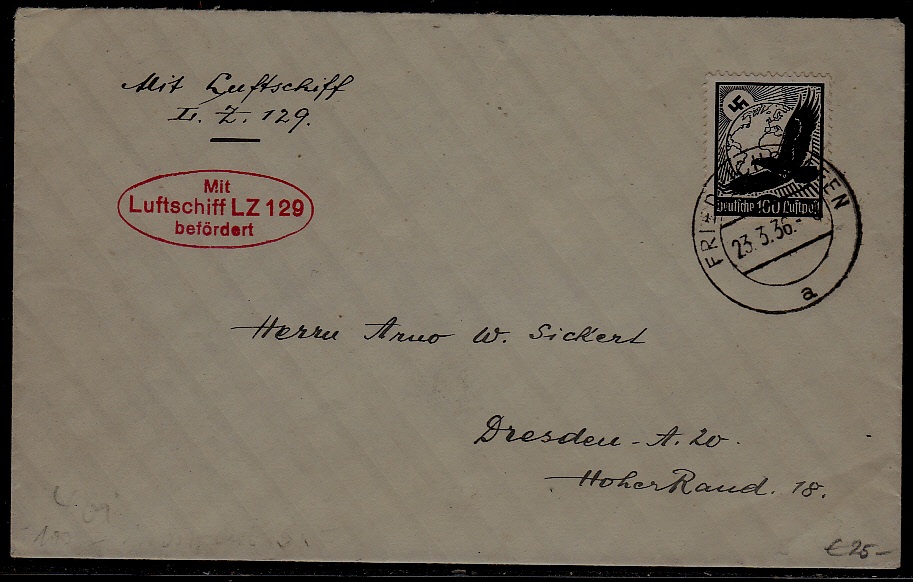 Mit Luftschiff
L. Z. 129.
Mit
Luftschiff LZ 129
befördert
Deutsche 100 Luftpost
23.3.36.
a
Herrn Arno W. Sickert
Dresden-A. 20.
Hoher Rand. 18.
€25-